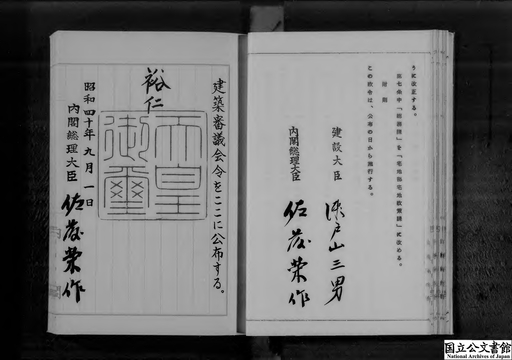 うに改正する。
第七条中「 」を「宅地部宅地政策課」に改める。
附則
この政令は、公布の日から施行する。
建設大臣 瀬戸山三男
内閣総理大臣 佐藤栄作
建築審議会令をここに公布する。
裕仁
天皇御璽
昭和四十年九月一日
内閣総理大臣 佐藤栄作
国立公文書館
National Archives of Japan